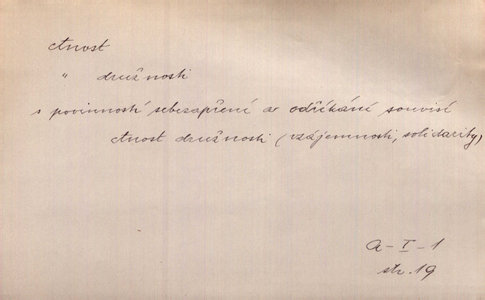 ctnost
" družnosti
s povinností sebezapření a odříkání souvisí
ctnost družnosti (vzájemnosti, solidarity)
A-I-1
str. 19